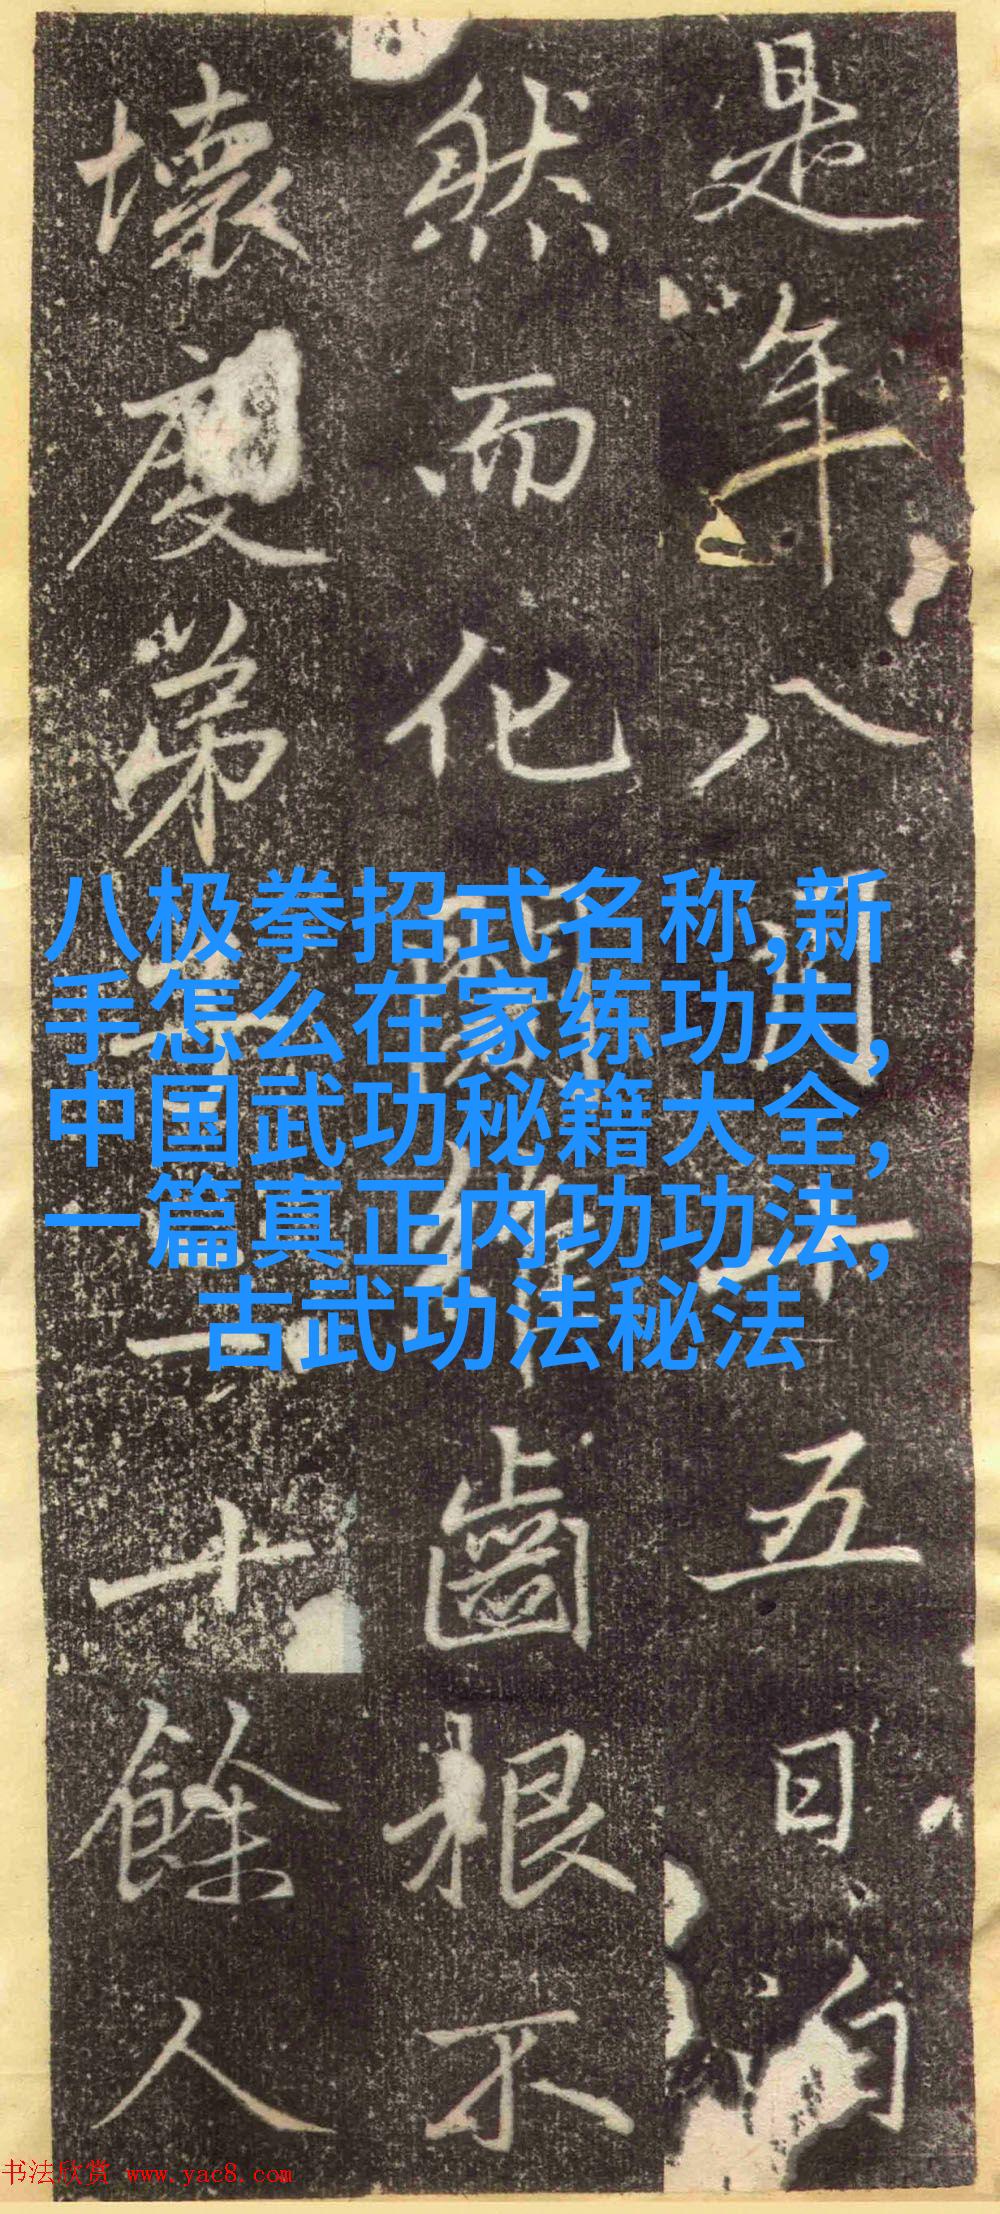 是年八月十五日
然而化闍維齒根不
壞度弟子十餘人
八极拳招式名称,新
手怎么在家练功夫,
中国武功秘籍大全,
一篇真正内功功法,
古武功法秘法
书法欣赏 www.yac8.com